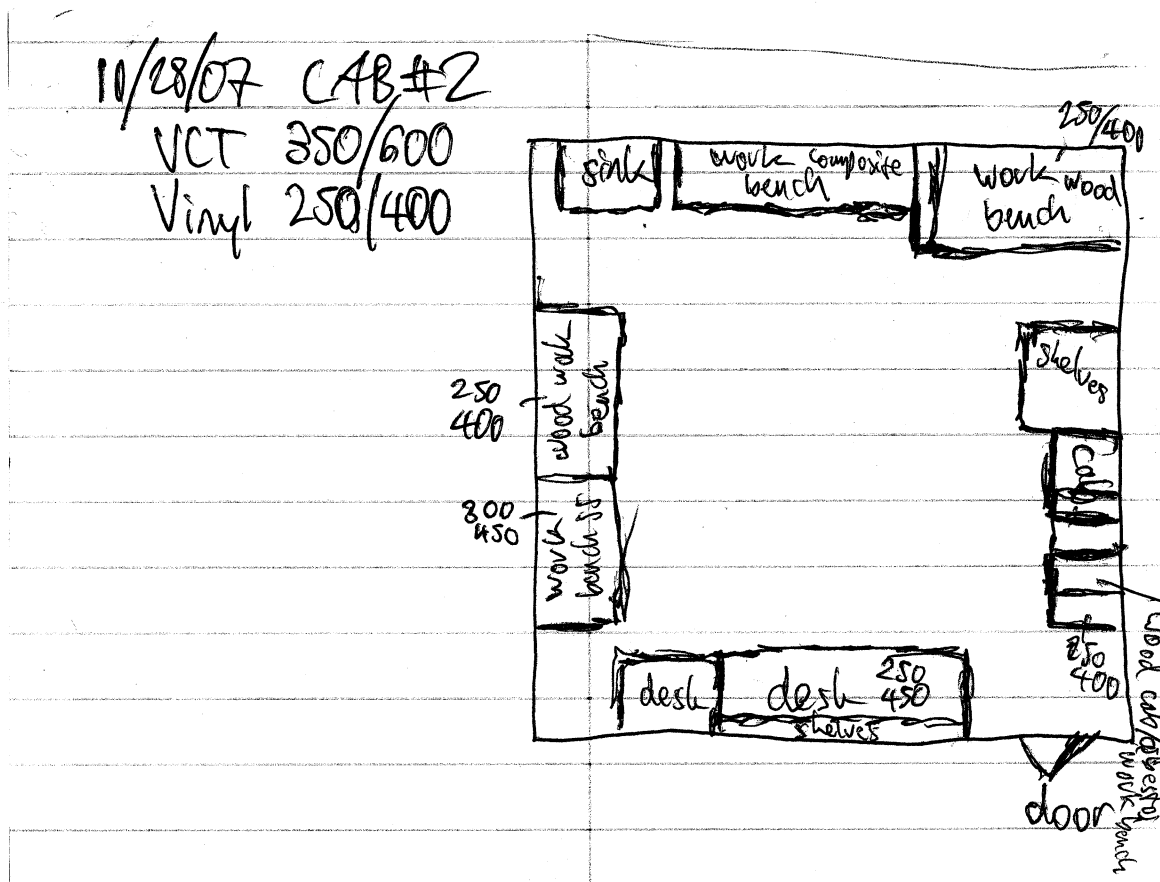 10/28/07 CAB#2
VCT 350/600
Vinyl 250/400
250/400
sink
work composite
bench
work wood
bench
shelves
cab
250
400
wood work
bench
800
450
work
bench SS
desk
desk
250
450
shelves
250
400
wood cab/asbestos
work bench
door